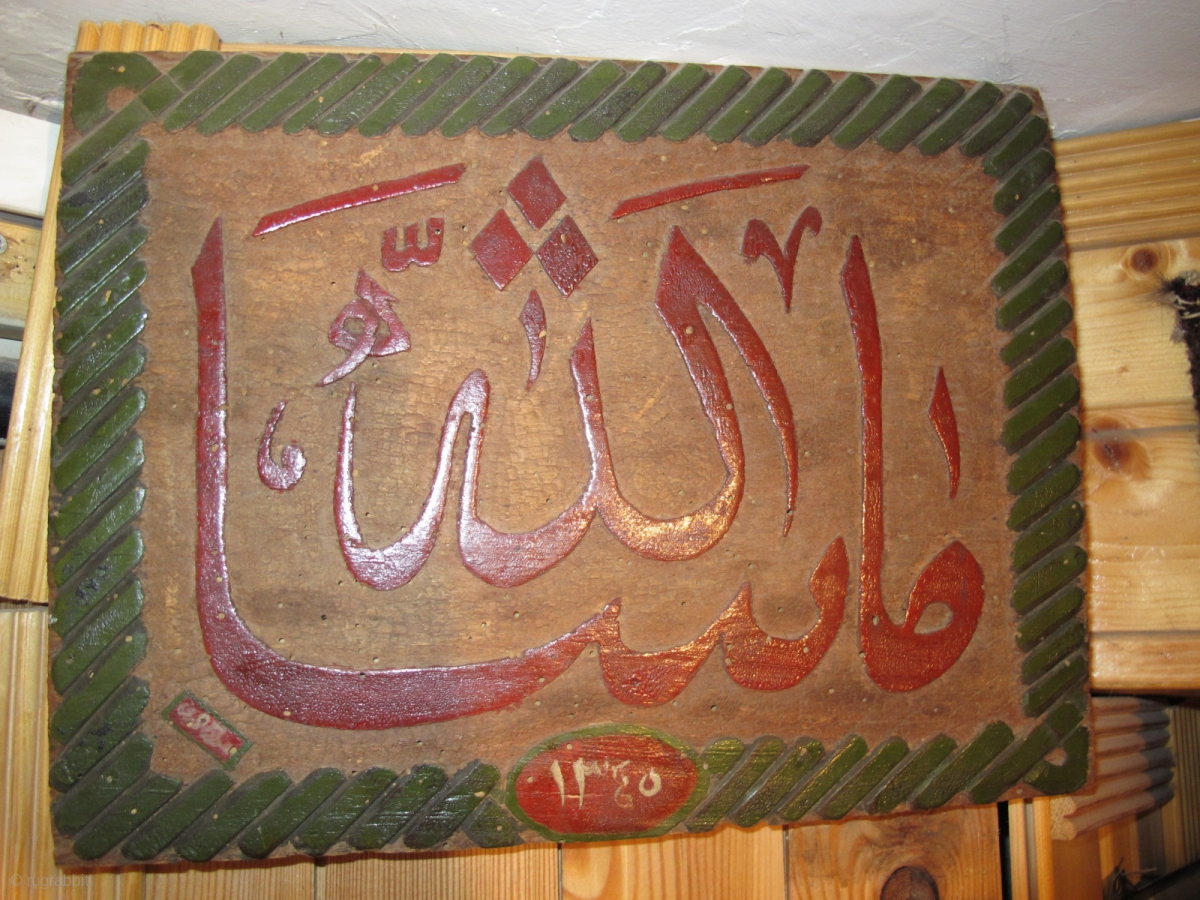 ما شاء الله
١٣٤٥
© rugrabbit